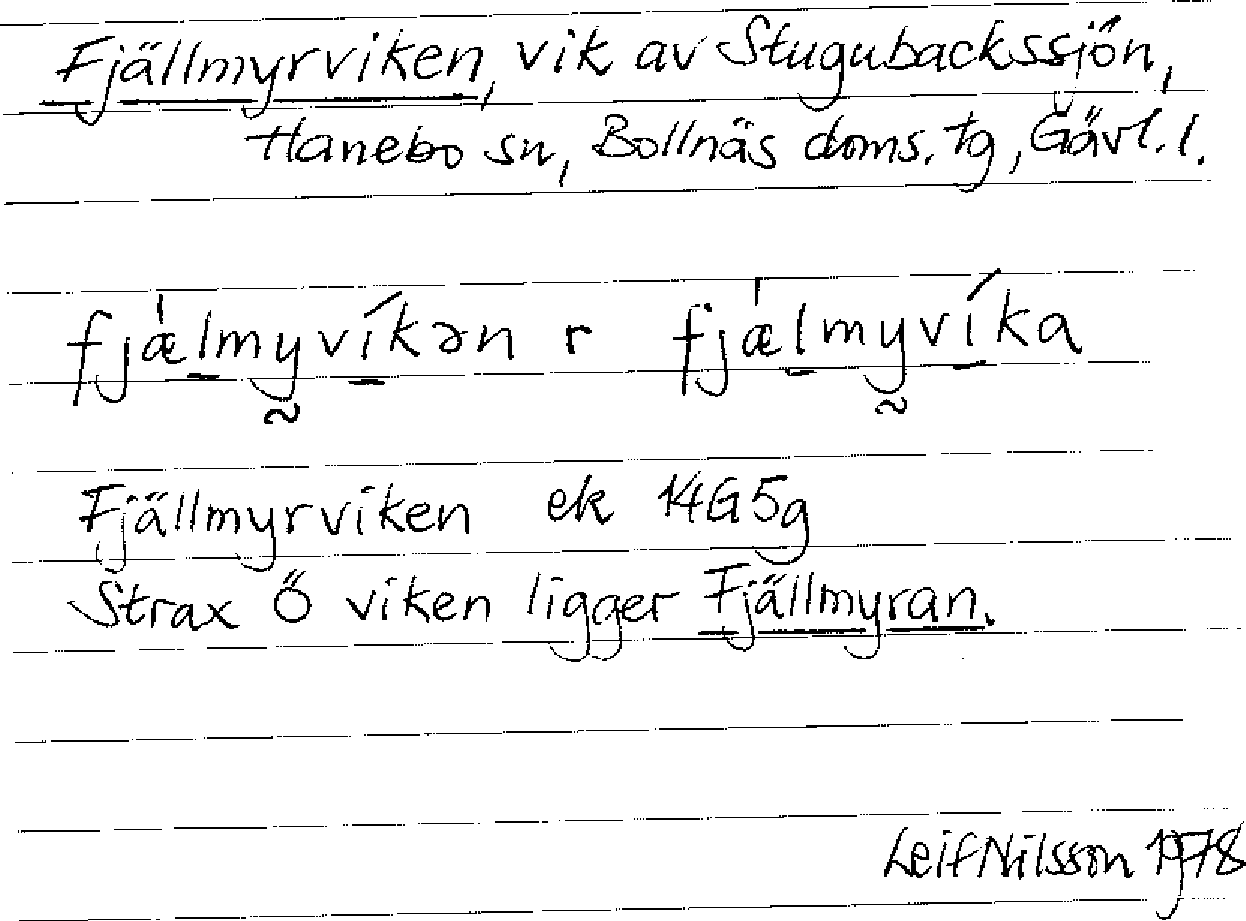 Fjällmyrviken, vik av Stugubackssjön,
Hanebo sn, Bollnäs doms. tg, Gävl. l.
fjǽlmyvíkən r fjǽlmyvíka
Fjällmyrviken ek 14G5g
Strax Ö viken ligger Fjällmyran.
Leif Nilsson 1978